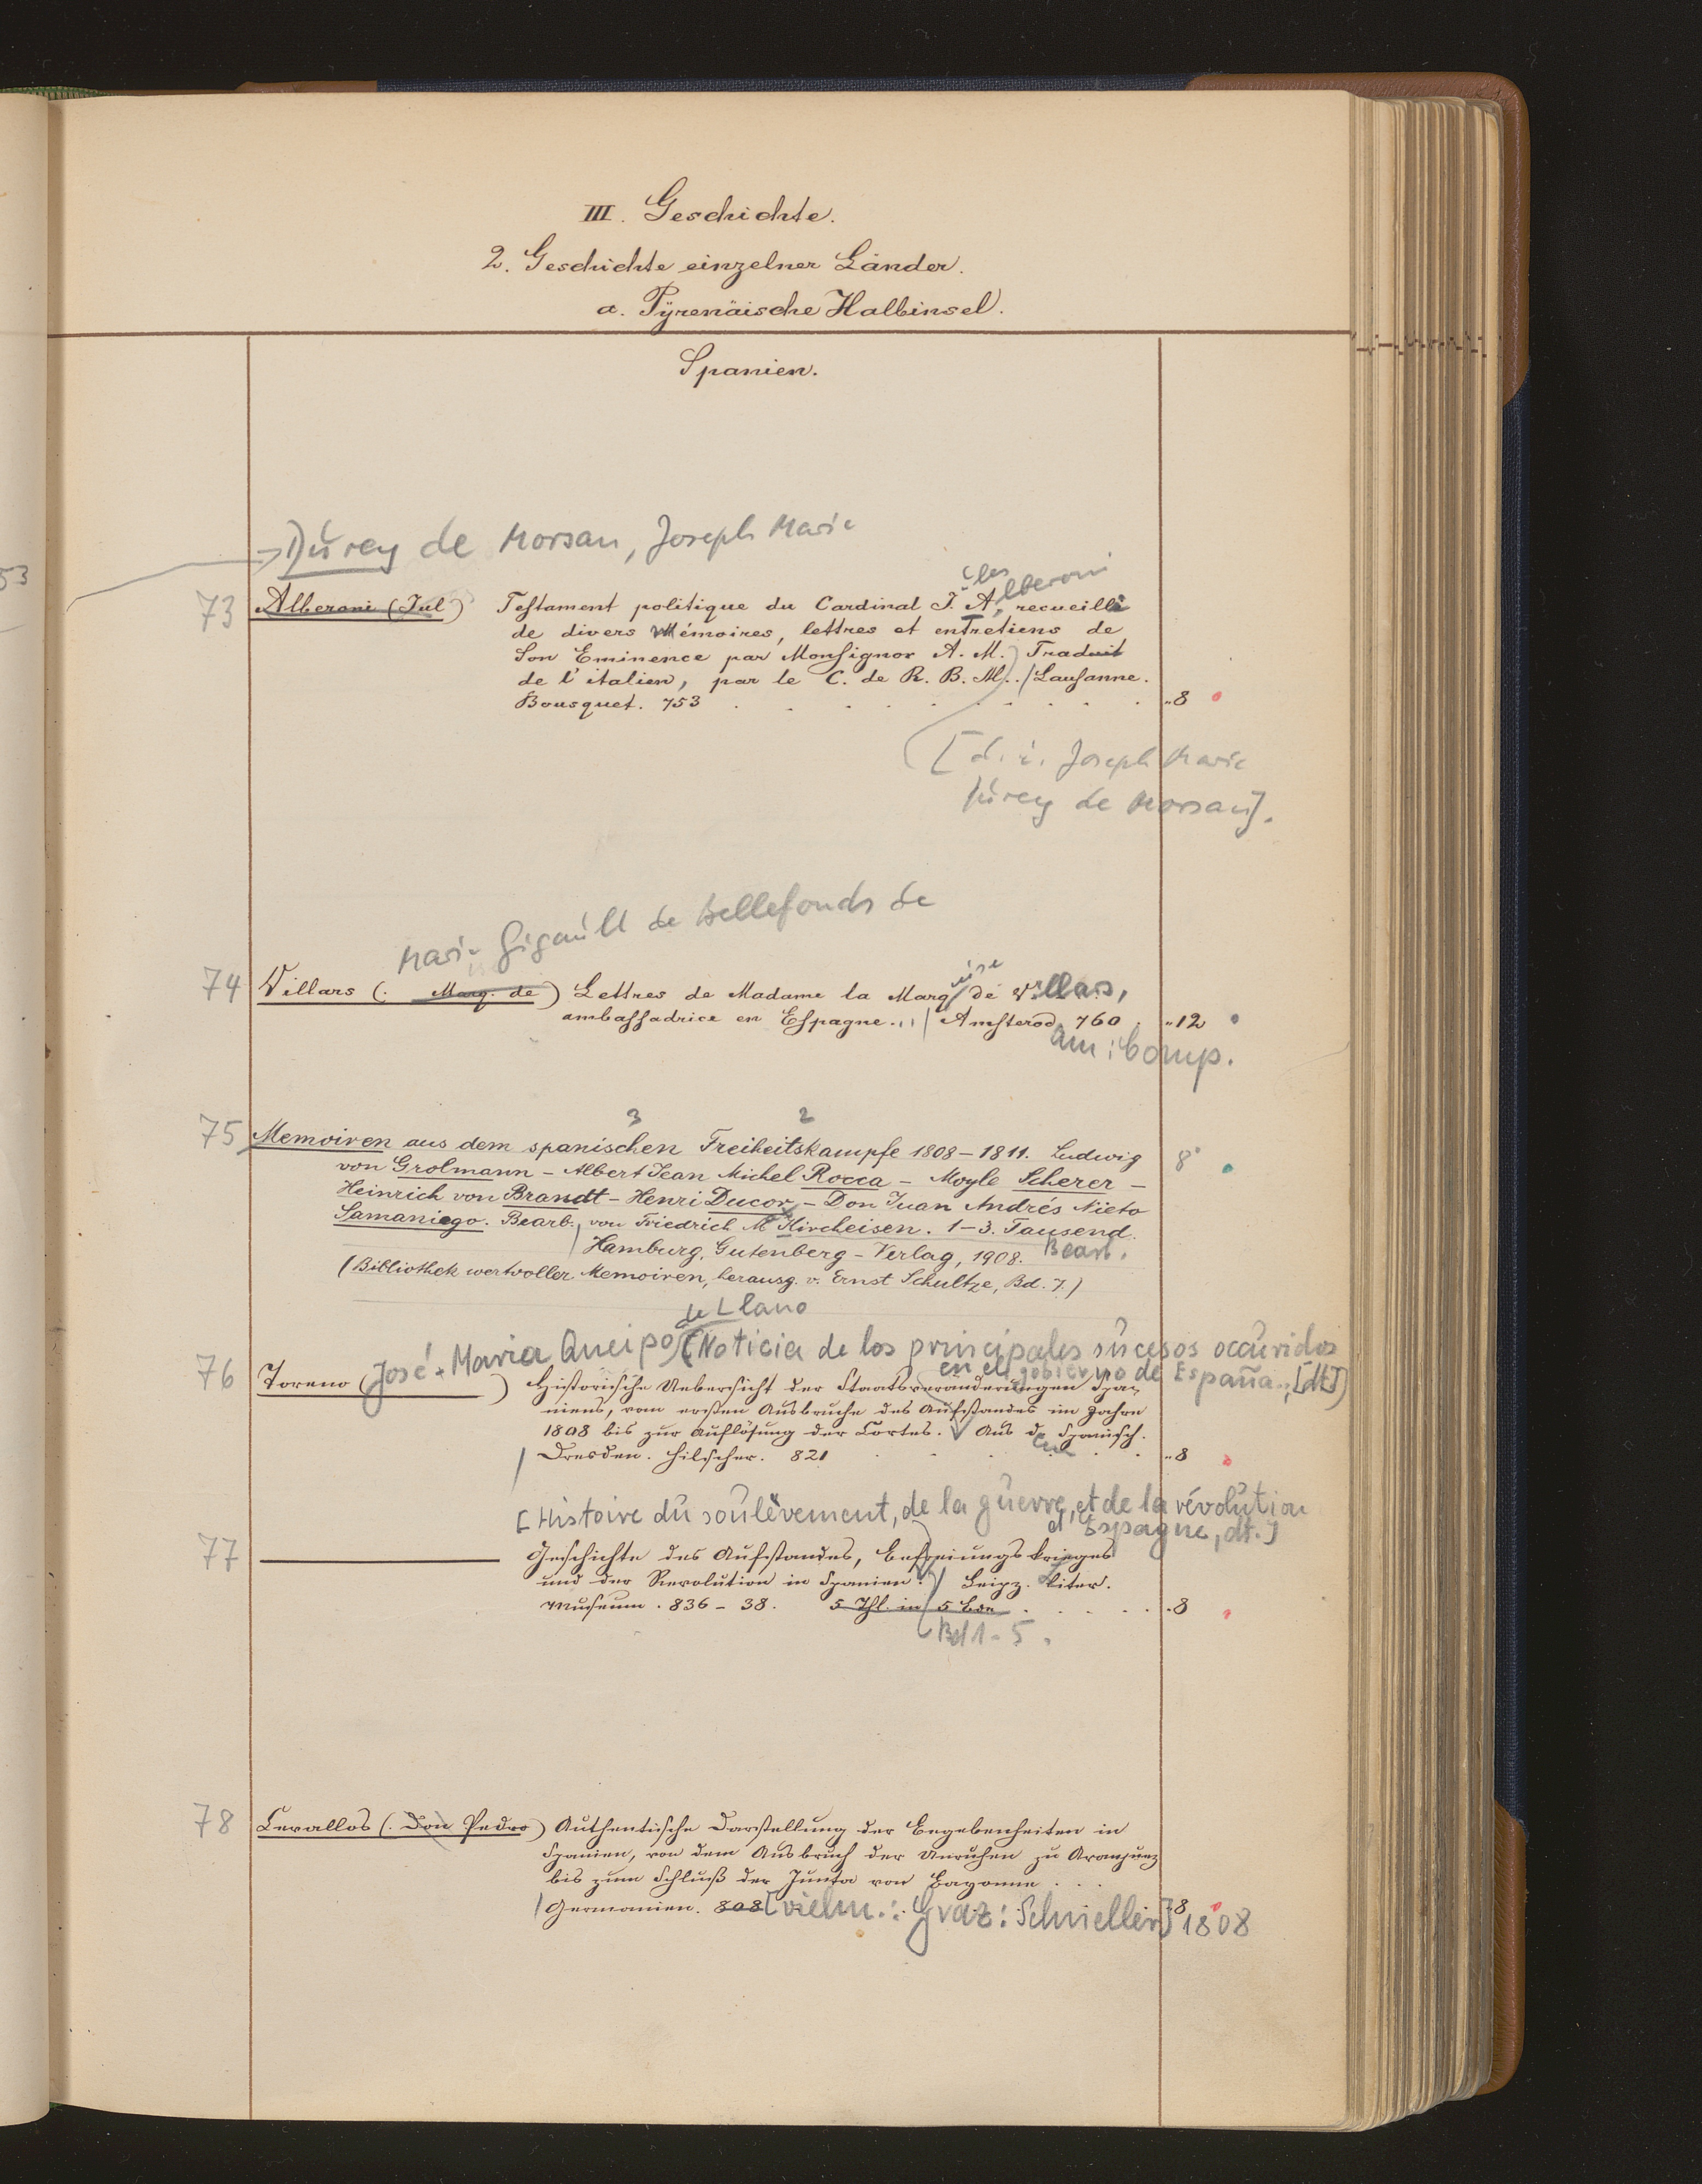 III. Geschichte.
2. Geschichte einzelner Länder.
a. Pÿrenäische Halbinsel.
Spanien.
53
→ Dürey de Morsan, Joseph Marie
73 Alberoni (Jul) Testament politique du Cardinal J. Alberoni, recueilli
de divers Mémoires, lettres et entretiens de
Son Eminence par Monsignor A. M. Traduit
de l'italien, par le C. de R. B. M. / Lausanne.
Bousquet. 753 . . . . . . . . „8
[d. i. Joseph Marie
Dürey de Morsan].
Marie Gigault de Bellefonds de
74 Villars (. Marq. de) Lettres de Madame la Marquise de Villars,
ambassadrice en Espagne... / Amsterod. 760 . „12
am: Comp.
3 2
75 Memoiren aus dem spanischen Freiheitskampfe 1808–1811. Ludwig 8°
von Grolmann – Albert Jean Michel Rocca – Moyle Scherer –
Heinrich von Brandt – Henri Ducor – Don Juan Andrés Nieto
Samaniego. Bearb. von Friedrich M Kircheisen. 1–3. Tausend.
Hamburg, Gutenberg-Verlag, 1908. Bearb.
(Bibliothek wertvoller Memoiren, herausg. v. Ernst Schultze, Bd. 7.)
de Llano
José Maria Queipo (Noticia de los principales sucesos occuridos
en el gobierno de España., [dt.])
76 Toreno ( ) Historische Uebersicht der Staatsveränderungen Spa-
niens, vom ersten Ausbruche des Aufstandes im Jahre
1808 bis zur Auflösung der Cortes. Aus d. Spanisch.
/ Dresden. Hilscher. 821 . . . . „8
[Histoire du soulèvement, de la guerre, et de la révolution
d'Espagne, dt.]
77 ——— Geschichte des Aufstandes, Befreiungskrieges
und der Revolution in Spanien. / Leipz. Liter.
Museum. 836–38. 5 Thl. in 5 Bde . . . . „8
Bd 1-5.
78 Cevallos (. Don Pedro) Authentische Darstellung der Begebenheiten in
Spanien, von dem Ausbruch der Unruhen zu Aranjuez
bis zum Schluß der Junta von Bayonne . . .
/ Germanien. 808 [vielm.: Graz: Schnieller] „8 1808